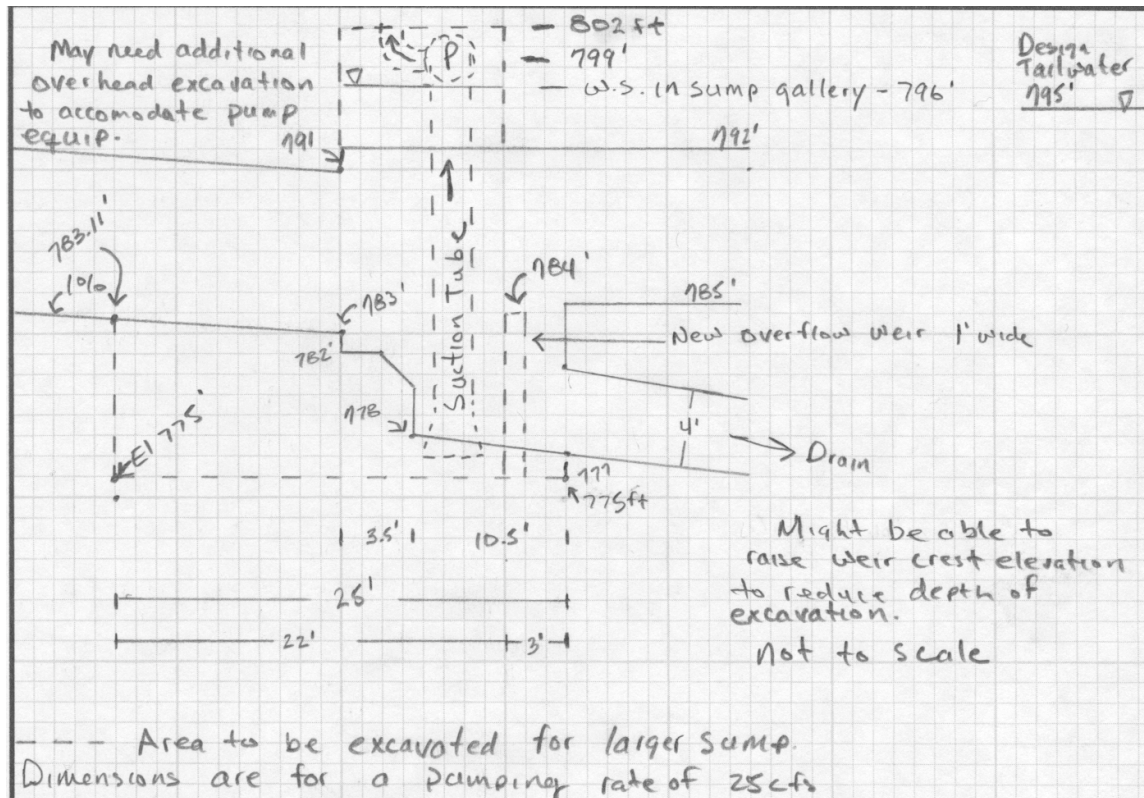 May need additional
overhead excavation
to accomodate pump
equip.
P
802 ft
799'
W.S. in sump gallery - 796'
Design
Tailwater
795'
791
792'
783.11'
1%
783'
782'
778
Suction Tube
784'
785'
New overflow weir 1' wide
4'
Drain
El 775'
777
775ft
3.5'
10.5'
25'
22'
3'
Might be able to
raise weir crest elevation
to reduce depth of
excavation.
not to scale
--- Area to be excavated for larger sump.
Dimensions are for a pumping rate of 25cfs